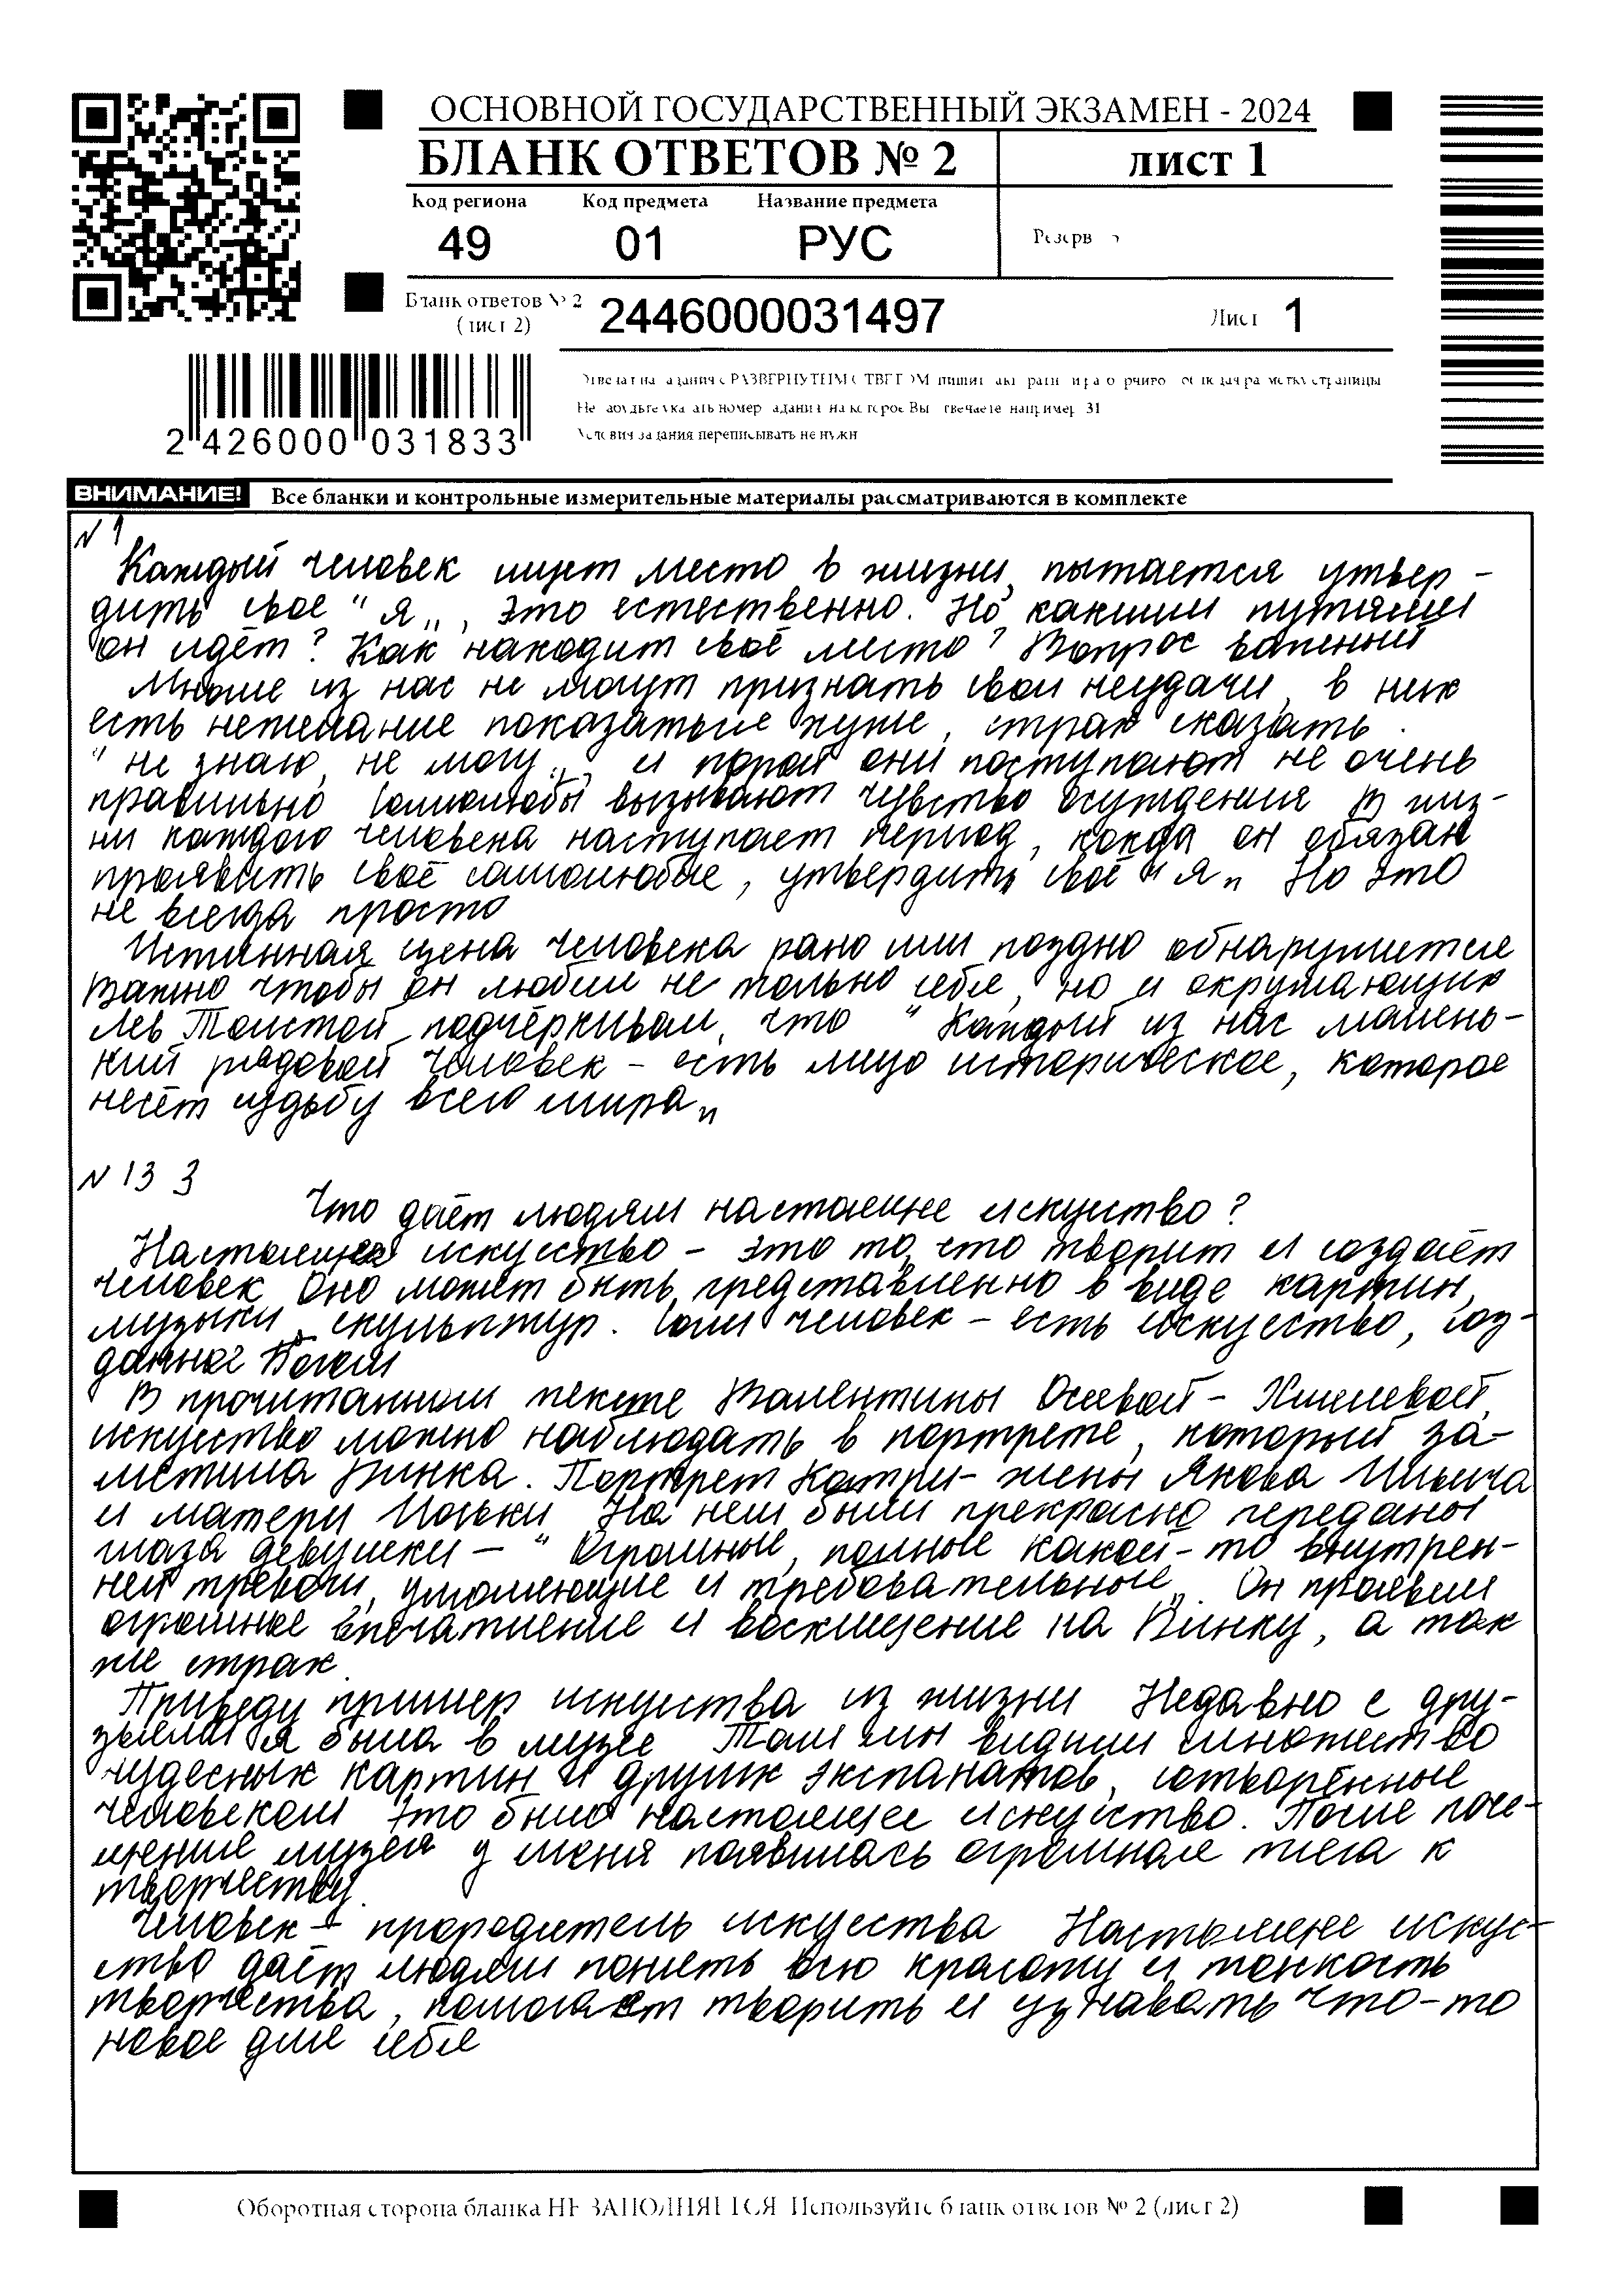 ОСНОВНОЙ ГОСУДАРСТВЕННЫЙ ЭКЗАМЕН - 2024
БЛАНК ОТВЕТОВ № 2
лист 1
Код региона Код предмета Название предмета
49 01 РУС
Резерв
Бланк ответов № 2
(лист 2)
2446000031497
Лист 1
2 426000 031833
Не номер задания на которое Вы отвечаете например 31
Условия задания переписывать не нужн
ВНИМАНИЕ! Все бланки и контрольные измерительные материалы рассматриваются в комплекте
N 1
Каждый человек ищет место в жизни, пытается утвер-
дить своё "я„, это естественно. Но какими путями
он идёт? Как находит своё место? Вопрос важный
Многие из нас не могут признать свои неудачи, в них
есть нежелание показаться хуже, страх сказать
"не знаю, не могу„, и порой они поступают не очень
правильно Самолюбы вызывают чувство осуждения В жиз-
ни каждого человека наступает период, когда он обязан
проявить своё самолюбие, утвердить своё "я„ Но это
не всегда просто
Истинная цена человека рано или поздно обнаружится
Важно чтобы он любил не только себя, но и окружающих
Лев Толстой подчёркивал, что "Каждый из нас малень-
кий рядовой человек - есть лицо историческое, которое
несёт судьбу всего мира„
N 13 3
Что даёт людям настоящее искуство?
Настоящее искусство - это то, что творит и создаёт
человек Оно может быть представленно в виде картин,
музыки, скульптур. Сам человек - есть искусство, соз-
данное Богом
В прочитанном тексте Валентины Осеевой - Хмелевой
искусство можно наблюдать в портрете, который за-
метила Динка. Портрет Катри- жены Якова Ильича
и матери Иоськи На нем были прекрасно переданы
глаза девушки — "Огромные, полные какой-то внутрен-
ней тревоги, умоляющие и требовательные„. Он произвел
огромное впечатление и восхищение на Динку, а так
же страх.
Приведу пример искуства из жизни Недавно с дру-
зьями я была в музее Там мы видели множество
чудесных картин и других экспанатов, сотворённые
человеком Это было настоящее искуство. После посе-
щение музея у меня появилась огромная тяга к
творчеству.
Человек - прородитель искуства Настоящее искус-
ство даёт людям понять всю красоту и тонкость
творчества, помогает творить и узнавать что-то
новое для себя
Оборотная сторона бланка НЕ ЗАПОЛНЯЕТСЯ Используйте бланк ответов № 2 (лист 2)